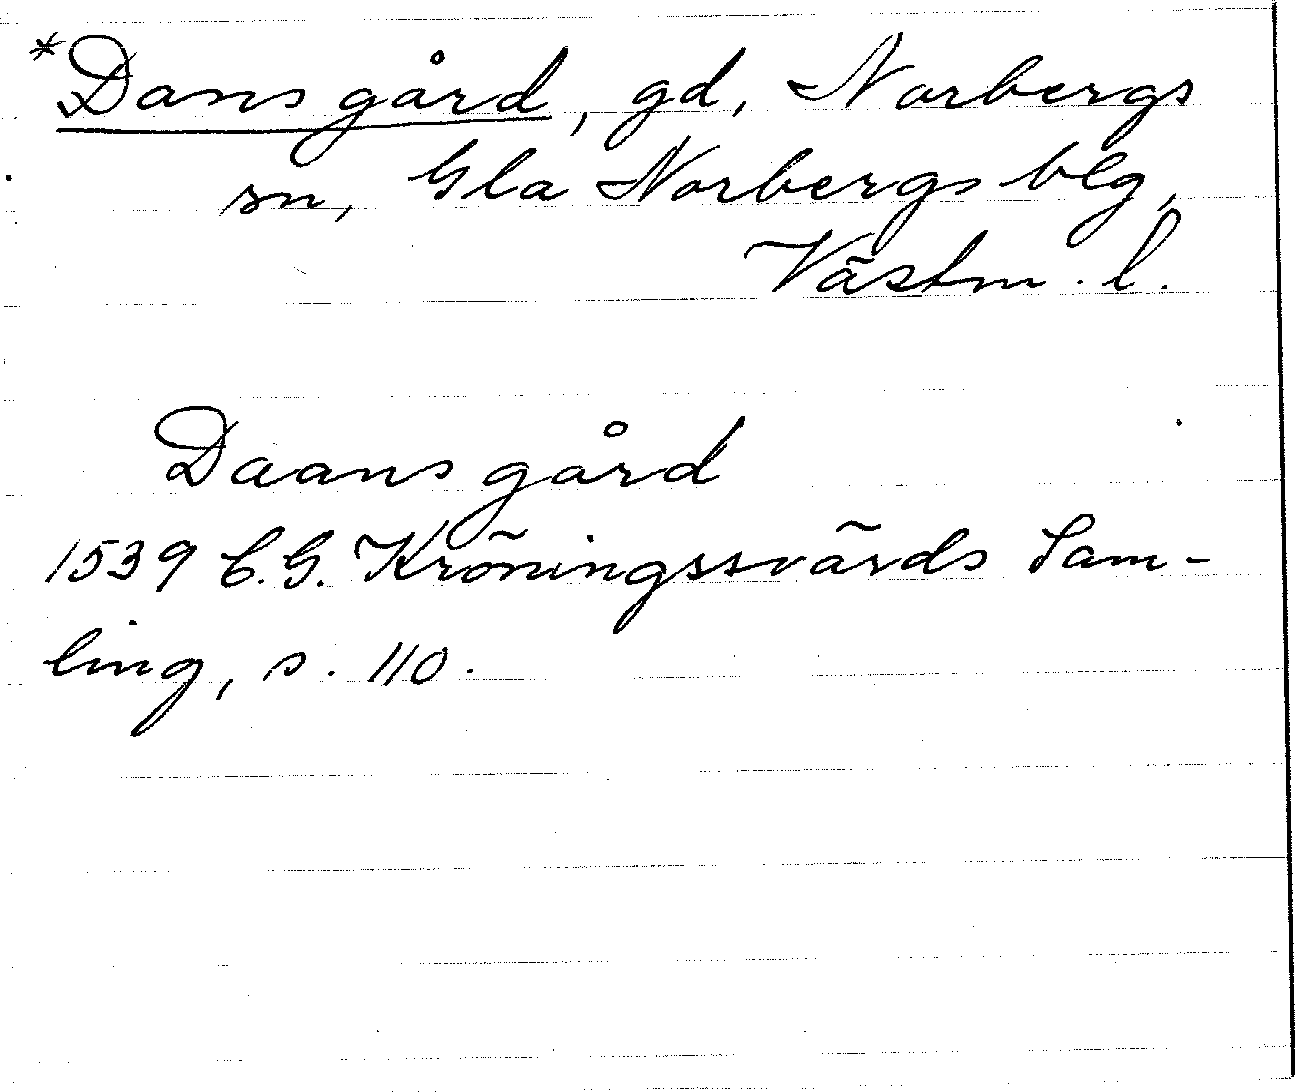 *Dansgård, gd, Norbergs
sn, Gla Norbergs blg,
Västm. l.
Daansgård
1539 C.G. Kröningssvärds Sam-
ling, s. 110.